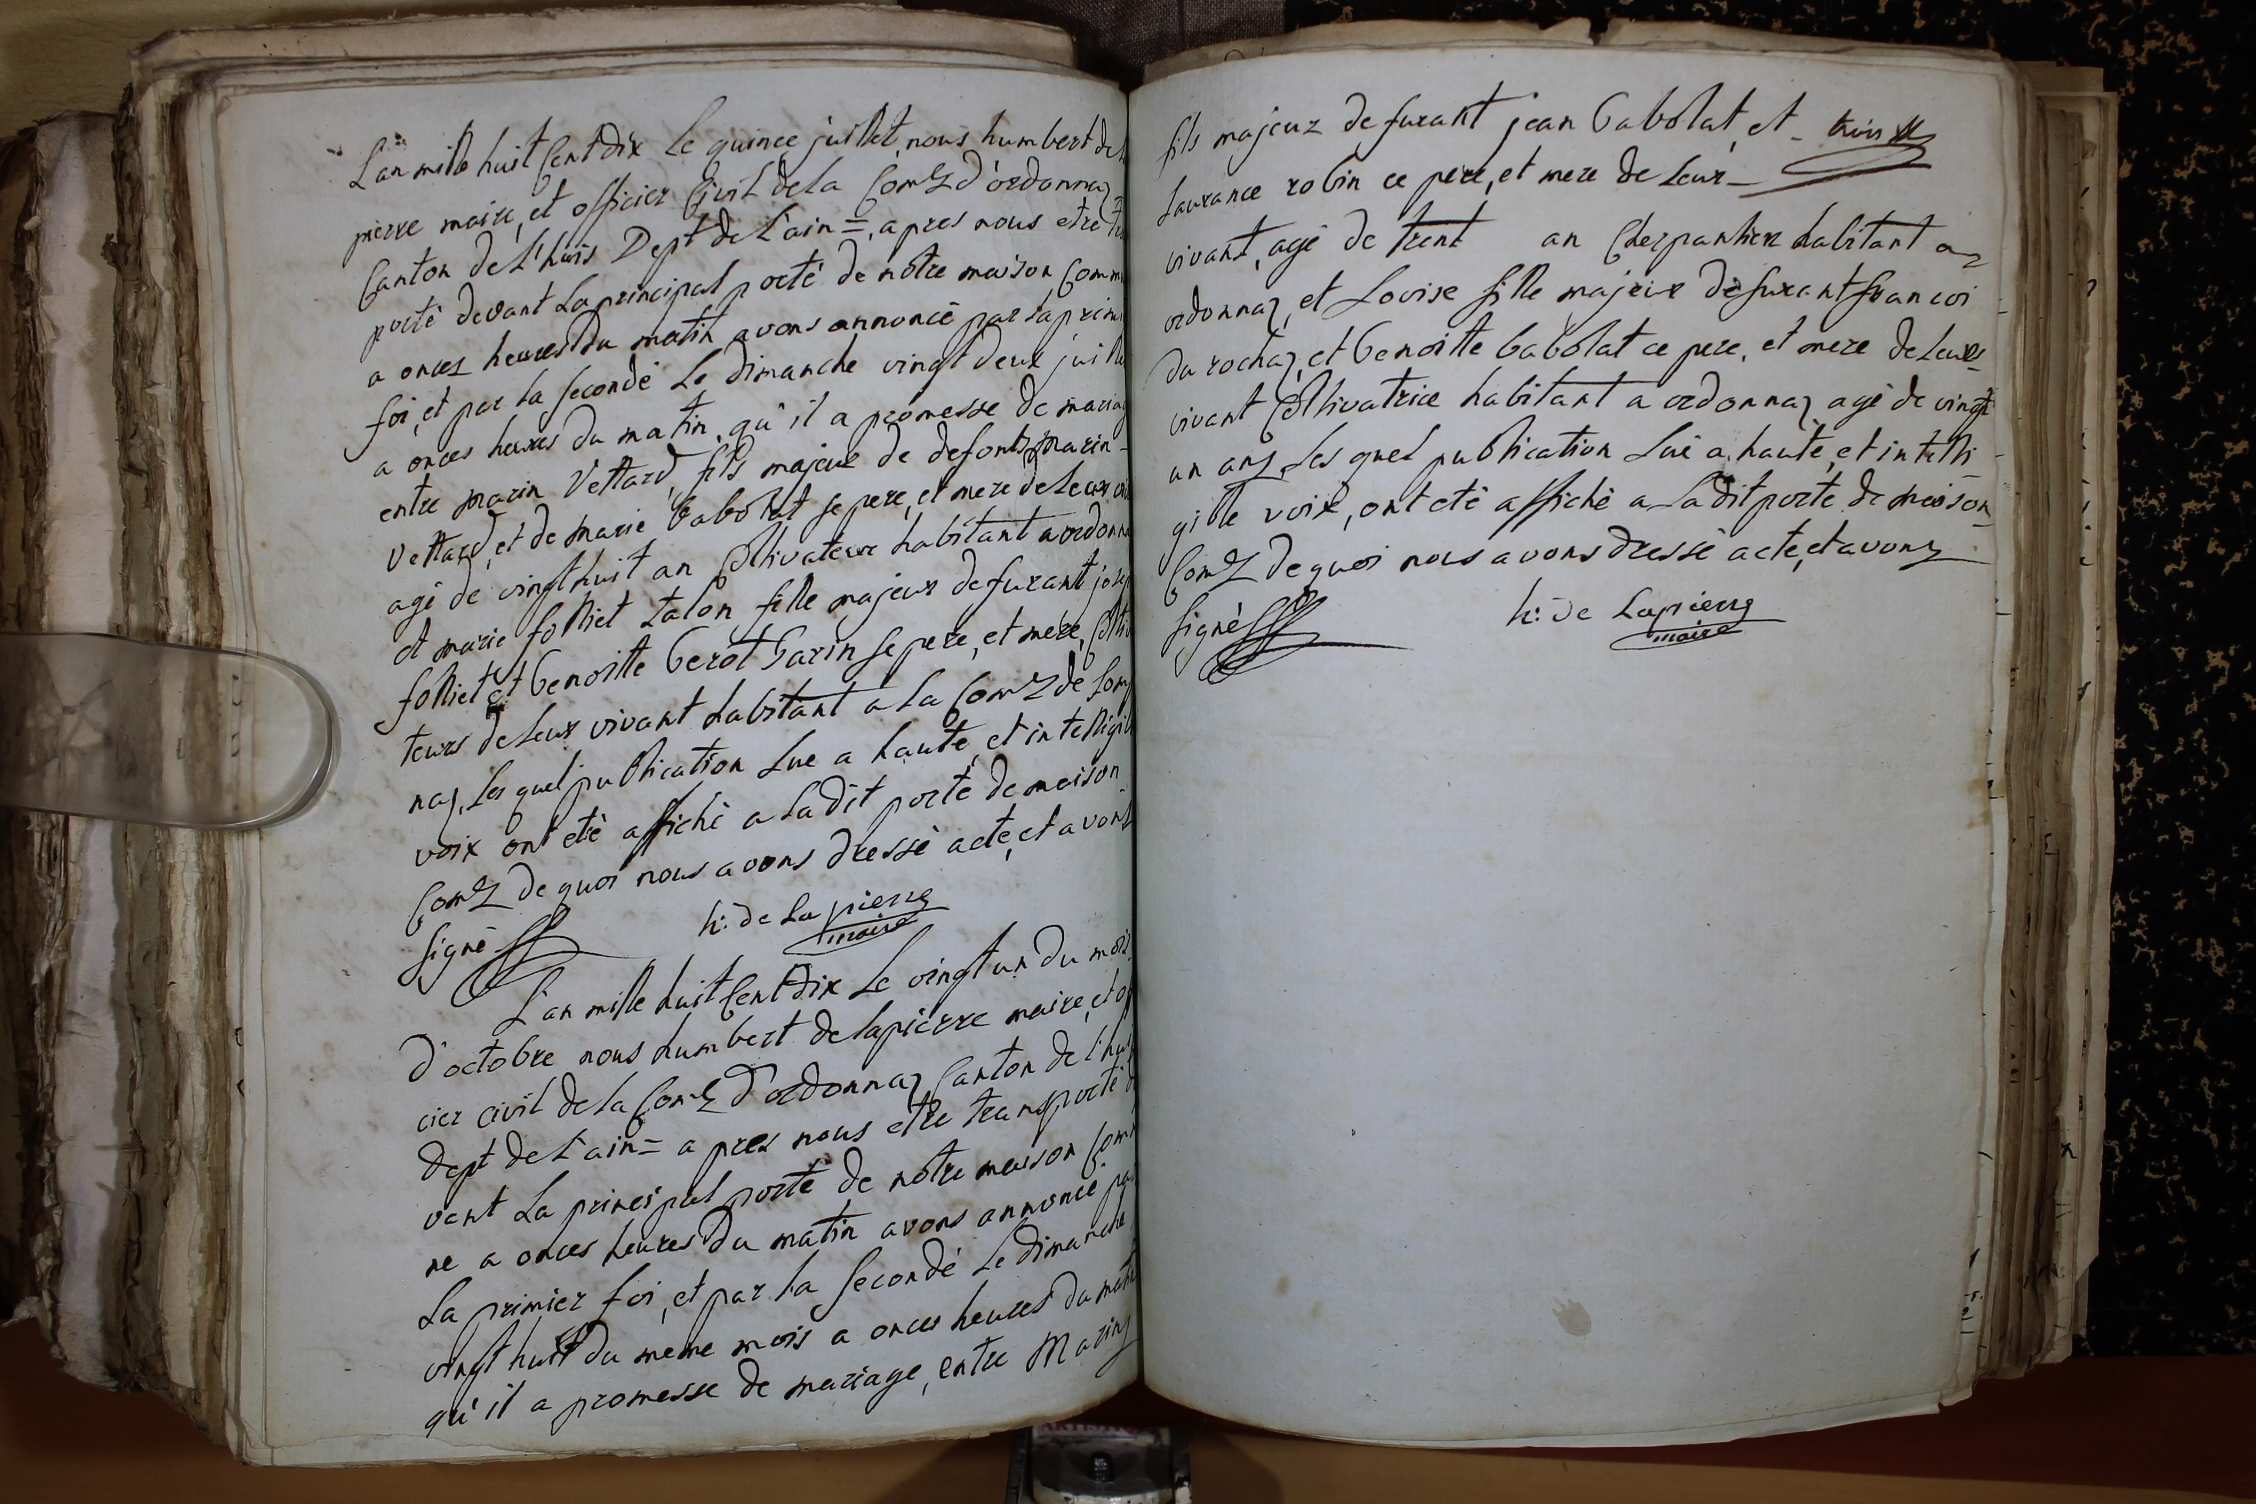 L'an mille huit Cent dix Le quince juillet, nous humbert de la
pierre maire, et officier Civil de la Comᵉ d'ordonnaz
Canton de L'huis Dept de L'ain =, apres nous etre
porté devant La principal porté de notre maison Comm
a onces heures du matin avons annoncé par la prim
foi, et par la secondé Le dimanche vingt deux juillet
a onces heures du matin, qu'il a promesse de mariag
entre marin Vettard, fils majeur de defonts marin -
Vettard, et de marie babolat se pere, et mere de Leur viv
agé de vingt huit an Coltivateur habitant a ordonna
et marie folliet talon fille majeur defurant josep
folliet et benoitte berot garin se pere, et mere, Coltiva
teurs de Leur vivant habitant a La Comᵉ de
naz, Les quel publication Lue a hauté, et intelligible
voix ont eté affiché a Ladit porté de maison
Comᵉ de quoi nous avons dressé acte, et avons
signé h: de Lapierre
maire
L'an mille huit Cent dix Le vingt un du mois
d'octobre nous humbert de lapierre maire, et offi
cier civil de la Comᵉ d'ordonnaz Canton de L'huis
Dept de L'ain = apres nous etre transporté de
vent La principal porté de notre maison Comu
ne a onces heures du matin avons annoncé par
La primier foi, et par La secondé Le dimanche
vingt huit du meme mois a onces heures du matin
qu'il a promesse de mariage, entre Marin
fils majeur defurant jean babolat, et - trois
Laurance robin ce pere, et mere de Leur -
vivant, agé de trent an Cherpantier habitant a
ordonnaz, et Lovise fille majeur defurant francoi
du rochaz, et benoitte babolat ce pere, et mere de Leurs
vivant Coltivatrice habitant a ordonnaz agé de vingt
un anz, Les quel publication Lué a haute, et intelli
gible voix, ont eté affiché a Ladit porte de maison
Comᵉ de quoi nous avons dressé acte, et avonz
signé h: de Lapierre
maire